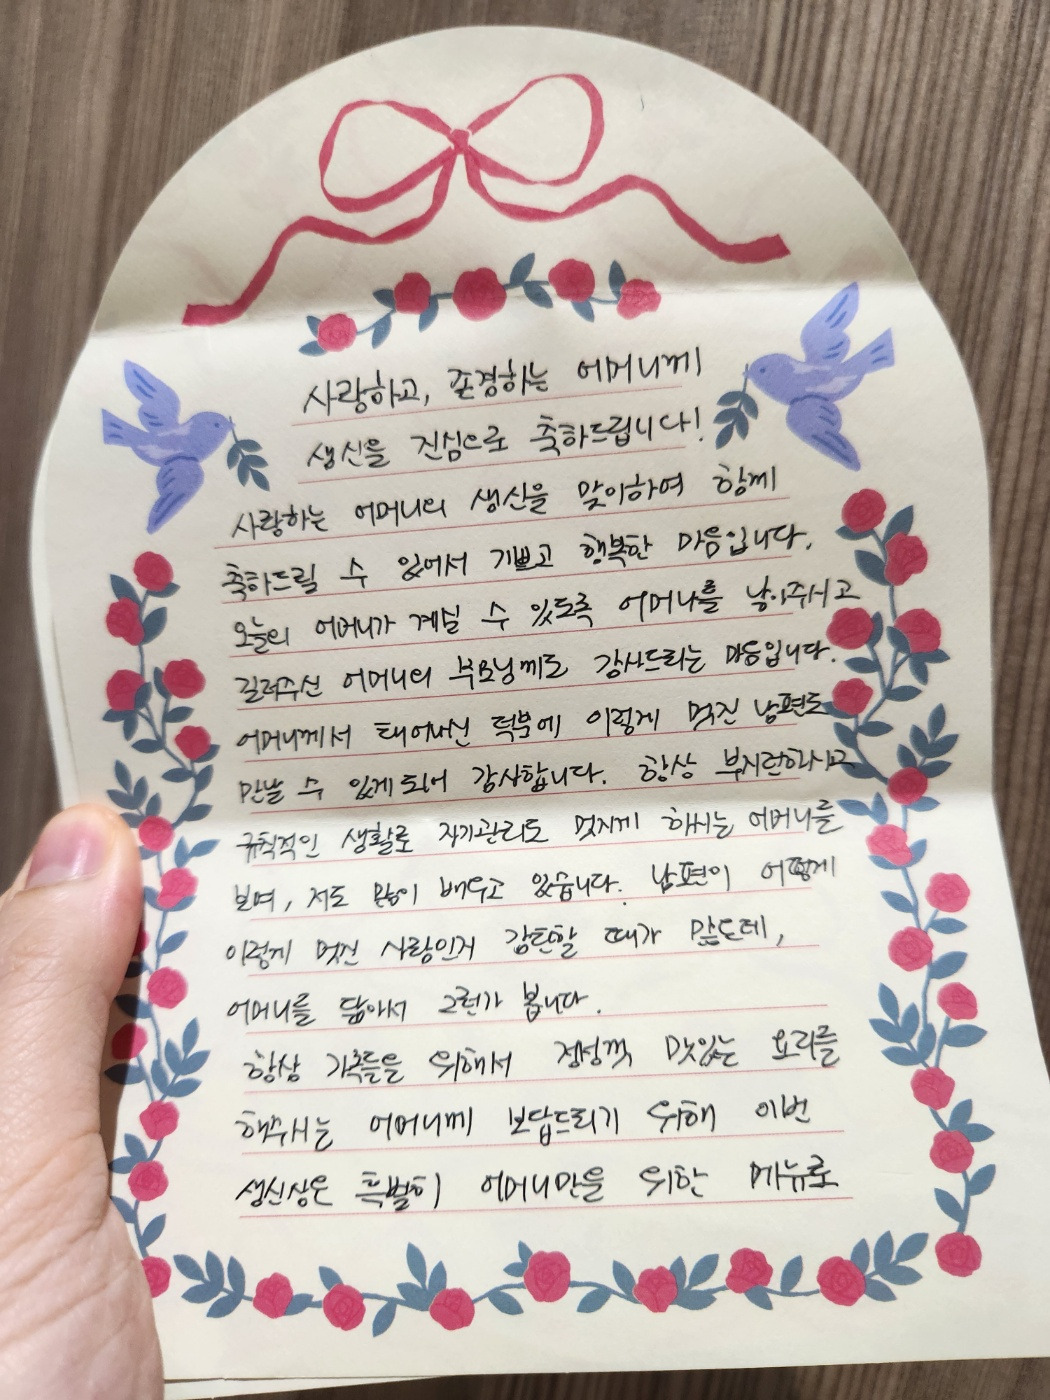 사랑하고, 존경하는 어머니께
생신을 진심으로 축하드립니다!
사랑하는 어머니의 생신을 맞이하여 함께
축하드릴 수 있어서 기쁘고 행복한 마음입니다.
오늘의 어머니가 계실 수 있도록 어머니를 낳아주시고
길러주신 어머니의 부모님께도 감사드리는 마음입니다.
어머니께서 태어나신 덕분에 이렇게 멋진 남편도
만날 수 있게 되어 감사합니다. 항상 부지런하시고
규칙적인 생활로 자기관리도 멋지게 하시는 어머니를
보며, 저도 많이 배우고 있습니다. 남편이 어떻게
이렇게 멋진 사람인지 감탄할 때가 많은데,
어머니를 닮아서 그런가 봅니다.
항상 가족들을 위해서 정성껏 맛있는 요리를
해주시는 어머니께 보답드리기 위해 이번
생신상은 특별히 어머니만을 위한 메뉴로